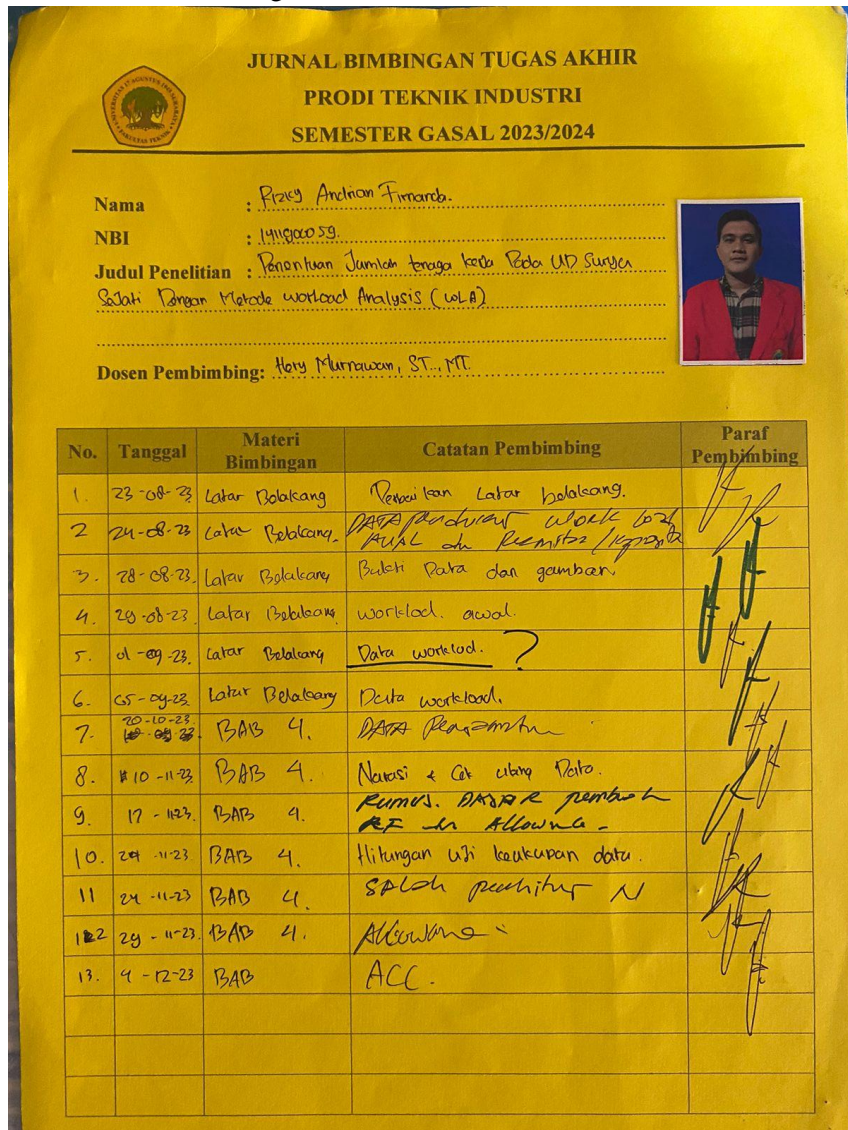 JURNAL BIMBINGAN TUGAS AKHIR
PRODI TEKNIK INDUSTRI
SEMESTER GASAL 2023/2024
Nama : Rizky Andrian Firnanda.
NBI : 1411900059.
Judul Penelitian : Penentuan Jumlah tenaga kerja Pada UD Surya
Sejati Dengan Metode workload Analysis (WLA)
Dosen Pembimbing: Hery Murnawan, ST., MT.
No. Tanggal Materi Bimbingan Catatan Pembimbing Paraf Pembimbing
1. 23-08-23 Latar Belakang Perbaikan Latar belakang.
2 24-08-23 Latar Belakang. DATA work load
AWAL
3. 28-08-23. Latar Belakang Bukti Data dan gambar.
4. 29-08-23. Latar Belakang worklod. awal.
5. 01-09-23. Latar Belakang Data worklod. ?
6. 05-09-23. Latar Belakang Data workload.
7. 20-10-23. BAB 4. DATA
8. 10-11-23. BAB 4. Narasi & Cek ulang Data.
9. 17-11-23. BAB 4. RUMUS. DASAR
RF Allowance
10. 24-11-23. BAB 4. Hitungan uji kecukupan data.
11 24-11-23 BAB 4. SALAH N
12 29-11-23. BAB 4. Allowance
13. 4-12-23 BAB ACC.